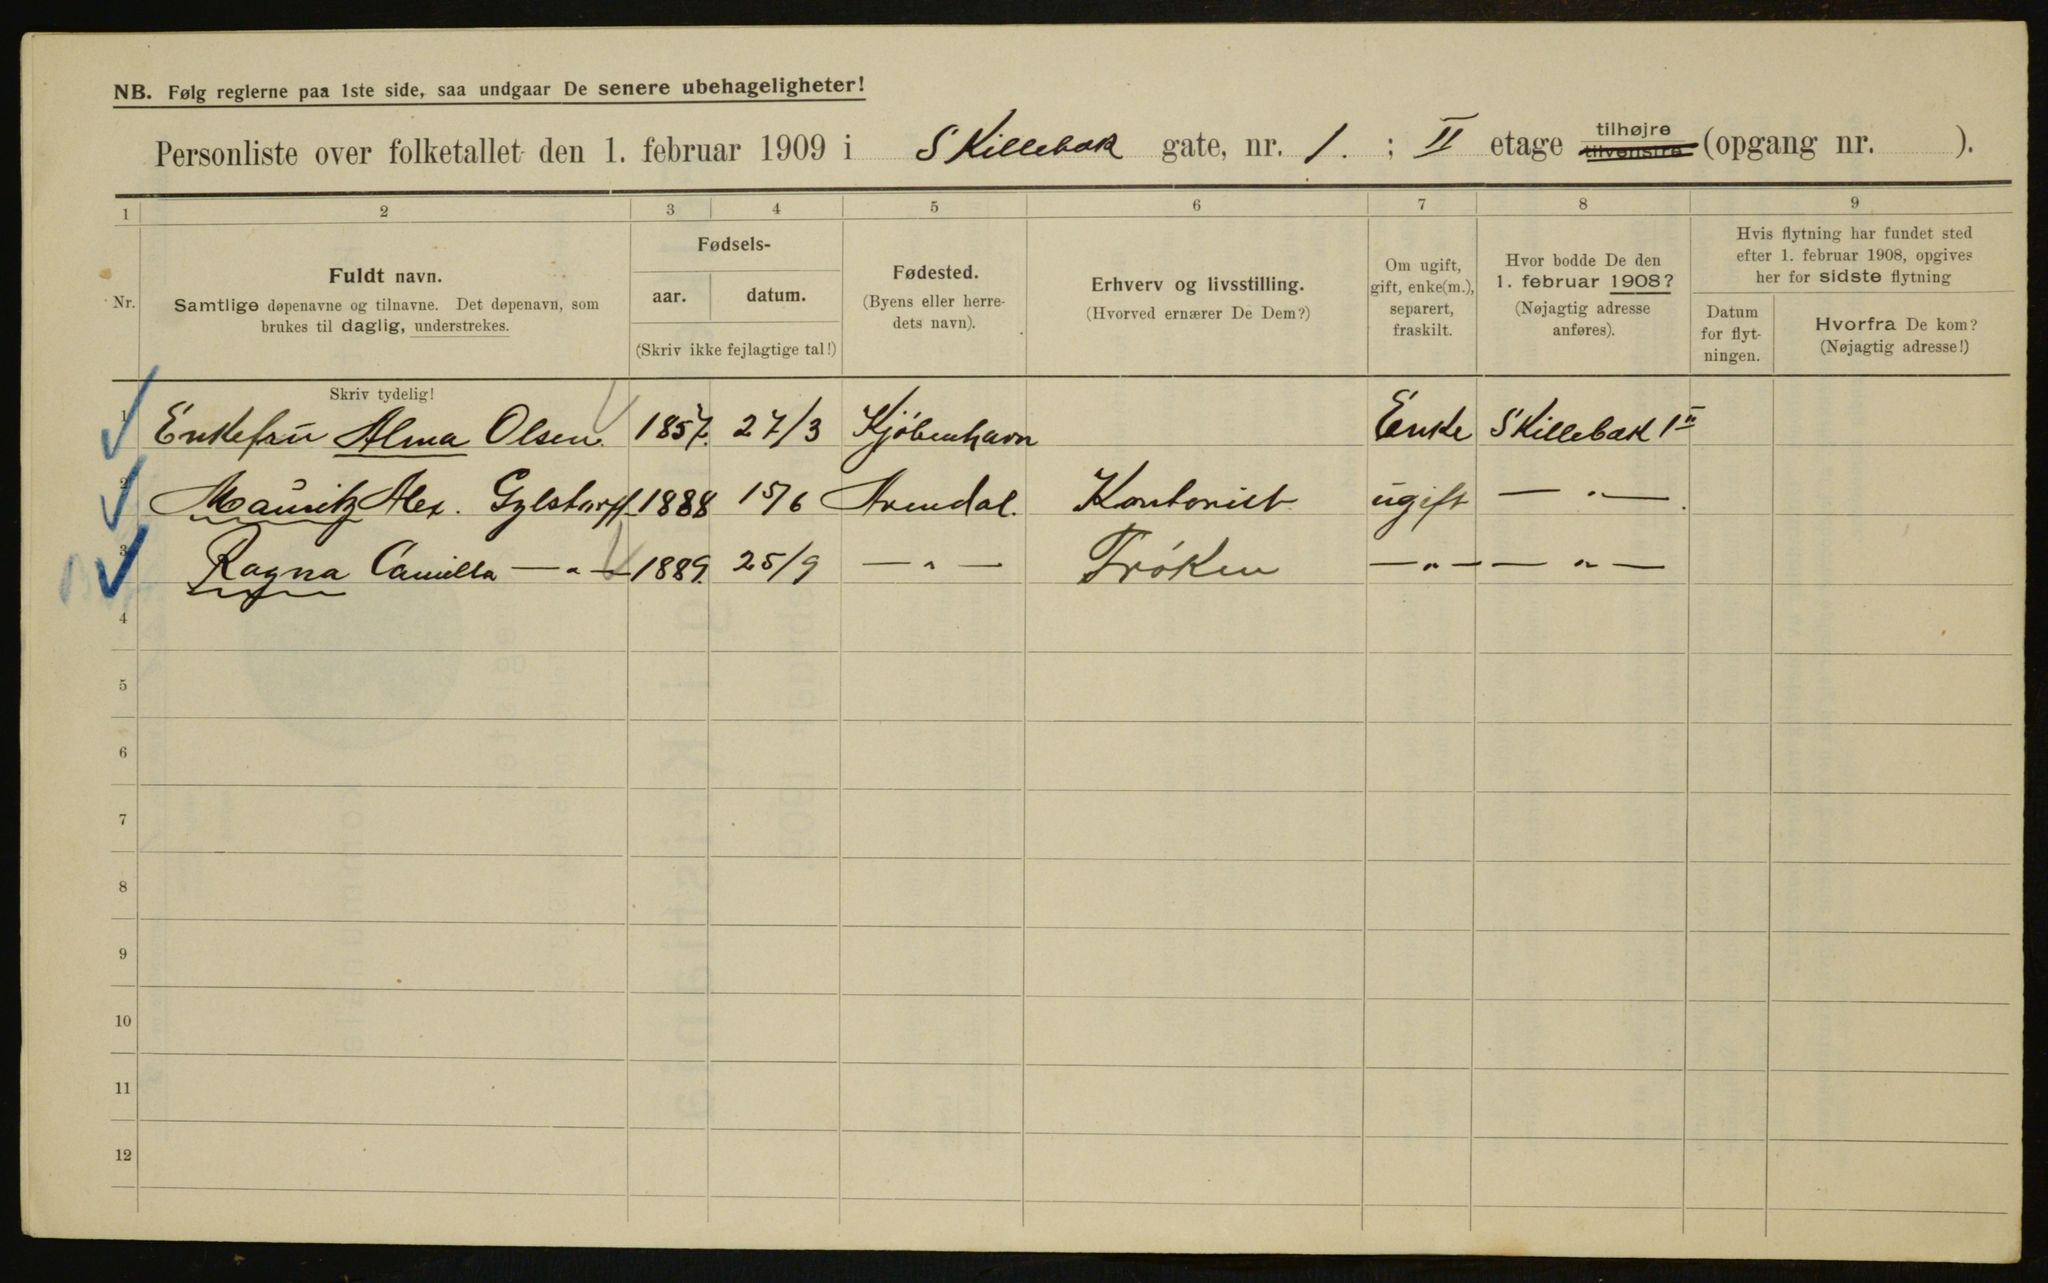 NB. Følg reglerne paa 1ste side, saa undgaar De senere ubehageligheter!
Personliste over folketallet den 1. februar 1909 i Skillebæk gate, nr. 1. ; II etage tilhøjre tilvenstre (opgang nr. ).
1 2 3 4 5 6 7 8 9
Nr.
Fuldt navn.
Samtlige døpenavne og tilnavne. Det døpenavn, som
brukes til daglig, understrekes.
Skriv tydelig!
Fødsels-
aar. datum.
(Skriv ikke fejlagtige tal!)
Fødested.
(Byens eller herre-
dets navn).
Erhverv og livsstilling.
(Hvorved ernærer De Dem?)
Om ugift,
gift, enke(m.),
separert,
fraskilt.
Hvor bodde De den
1. februar 1908?
(Nøjagtig adresse
anføres).
Hvis flytning har fundet sted
efter 1. februar 1908, opgives
her for sidste flytning
Datum
for flyt-
ningen.
Hvorfra De kom?
(Nøjagtig adresse!)
1 Enkefru Alma Olsen. 1857. 27/3 Kjøbenhavn Enke Skillebæk 1 II
2 Mauritz Alex. Gylstorff 1888 15/6 Arendal. Kontorist ugift — " —
3 Ragna Camilla — " — 1889. 25/9 — " — Frøken — " — — " —
4
5
6
7
8
9
10
11
12